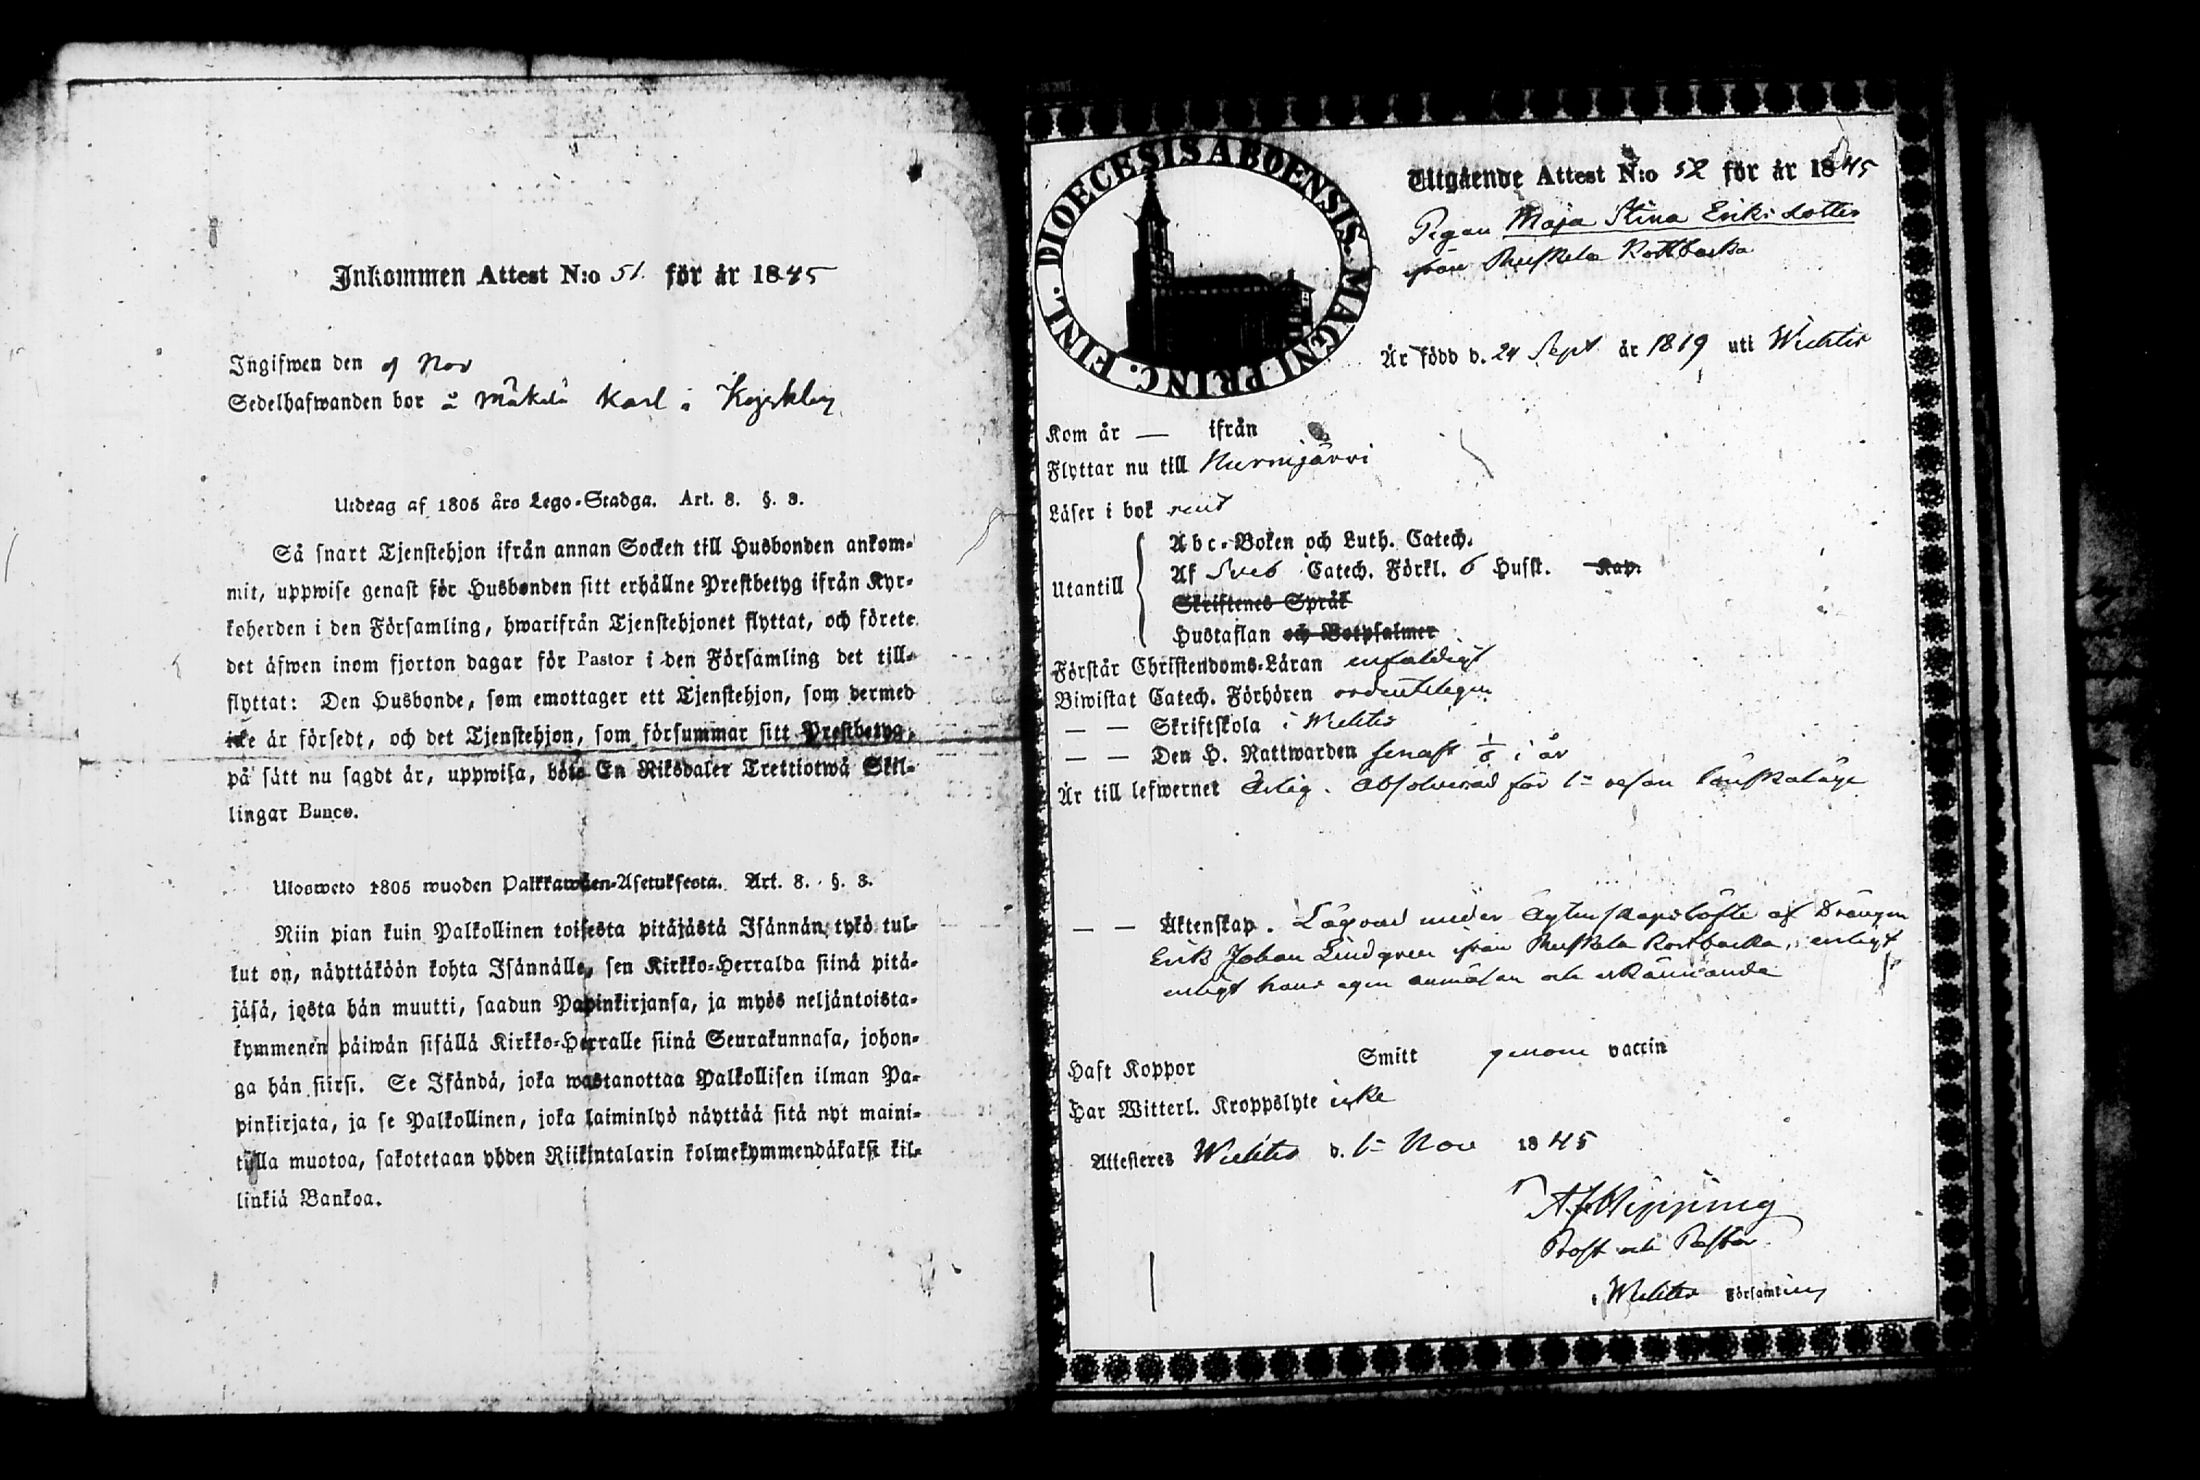 Inkommen Attest N:o 51. för år 1845
Ingifwen den 9 Nov
Sedelhafwanden bor å Mäkelä Karl i
Utdrag af 1805 års Lego-Stadga. Art. 8. §. 8.
Så snart Tjenstehjon ifrån annan Socken till Husbonden ankom-
mit, uppwise genast för Husbonden sitt erhållne Prestbetyg ifrån Kyr-
koherden i den Församling, hwarifrån Tjenstehjonet flyttat, och förete
det äfwen inom fjorton dagar för Pastor i den Församling det till-
flyttat: Den Husbonde, som emottager ett Tjenstehjon, som dermed
icke är försedt, och det Tjenstehjon, som försummar sitt Prestbetyg,
på sätt nu sagdt är, uppwisa, böte En Riksdaler Trettiotwå Skil-
lingar Banco.
Ulosweto 1805 wuoden Palkkawäen-Asetuksesta. Art. 8. §. 8.
Niin pian kuin Palkollinen toisesta pitäjästä Isännän tykö tul-
lut on, näyttäköön kohta Isännälle, sen Kirkko-Herralda siinä pitä-
jäsä, josta hän muutti, saadun Papinkirjansa, ja myös neljäntoista-
kymmenen päiwän sisällä Kirkko-Herralle siinä Seurakunnasa, johon-
ga hän siirsi. Se Isändä, joka wastanottaa Palkollisen ilman Pa-
pinkirjata, ja se Palkollinen, joka laiminlyö näyttää sitä nyt maini-
tulla muotoa, sakotetaan yhden Riikintalarin kolmekymmendäkaksi kil-
linkiä Bankoa.
DIOECESIS ABOENSIS. MAGNI PRINC. FINL.
Utgående Attest N:o 52 för år 1845
Pigan Maja Stina Eriksdotter
ifrån Muskela Rostbacka
Är född d. 24 Sept år 1819 uti Wichtis
Kom år — ifrån
Flyttar nu till Nurmijärvi
Läser i bok rent
Utantill
Abc-Boken och Luth. Catech.
Af Sveb Catech. Förkl. 6 Hufst. Kap.
Skriftenes Språk
Hustaflan och Botpsalmer
Förstår Christendoms-Läran enfaldigt
Biwistat Catech. Förhören ordenteligen
— — Skriftskola i Wichtis
— — Den H. Nattwarden senast 1/6 i år
Är till lefwernet Ärlig. Absolverad för 1:a resan Lönskaläge
— — Äktenskap. Lägrad under Äktenskapslöfte af Drängen
Erik Johan Lindgren ifrån Muskela Rostbacka, enligt
enligt hans egen anmälan och erkännande
Haft Koppor Smitt genom vaccin
Har Witterl. Kroppslyte icke
Attesteres Wichtis d. 1 Nov 1845
A J Hipping
Prost och Pastor
i Wichtis Församling